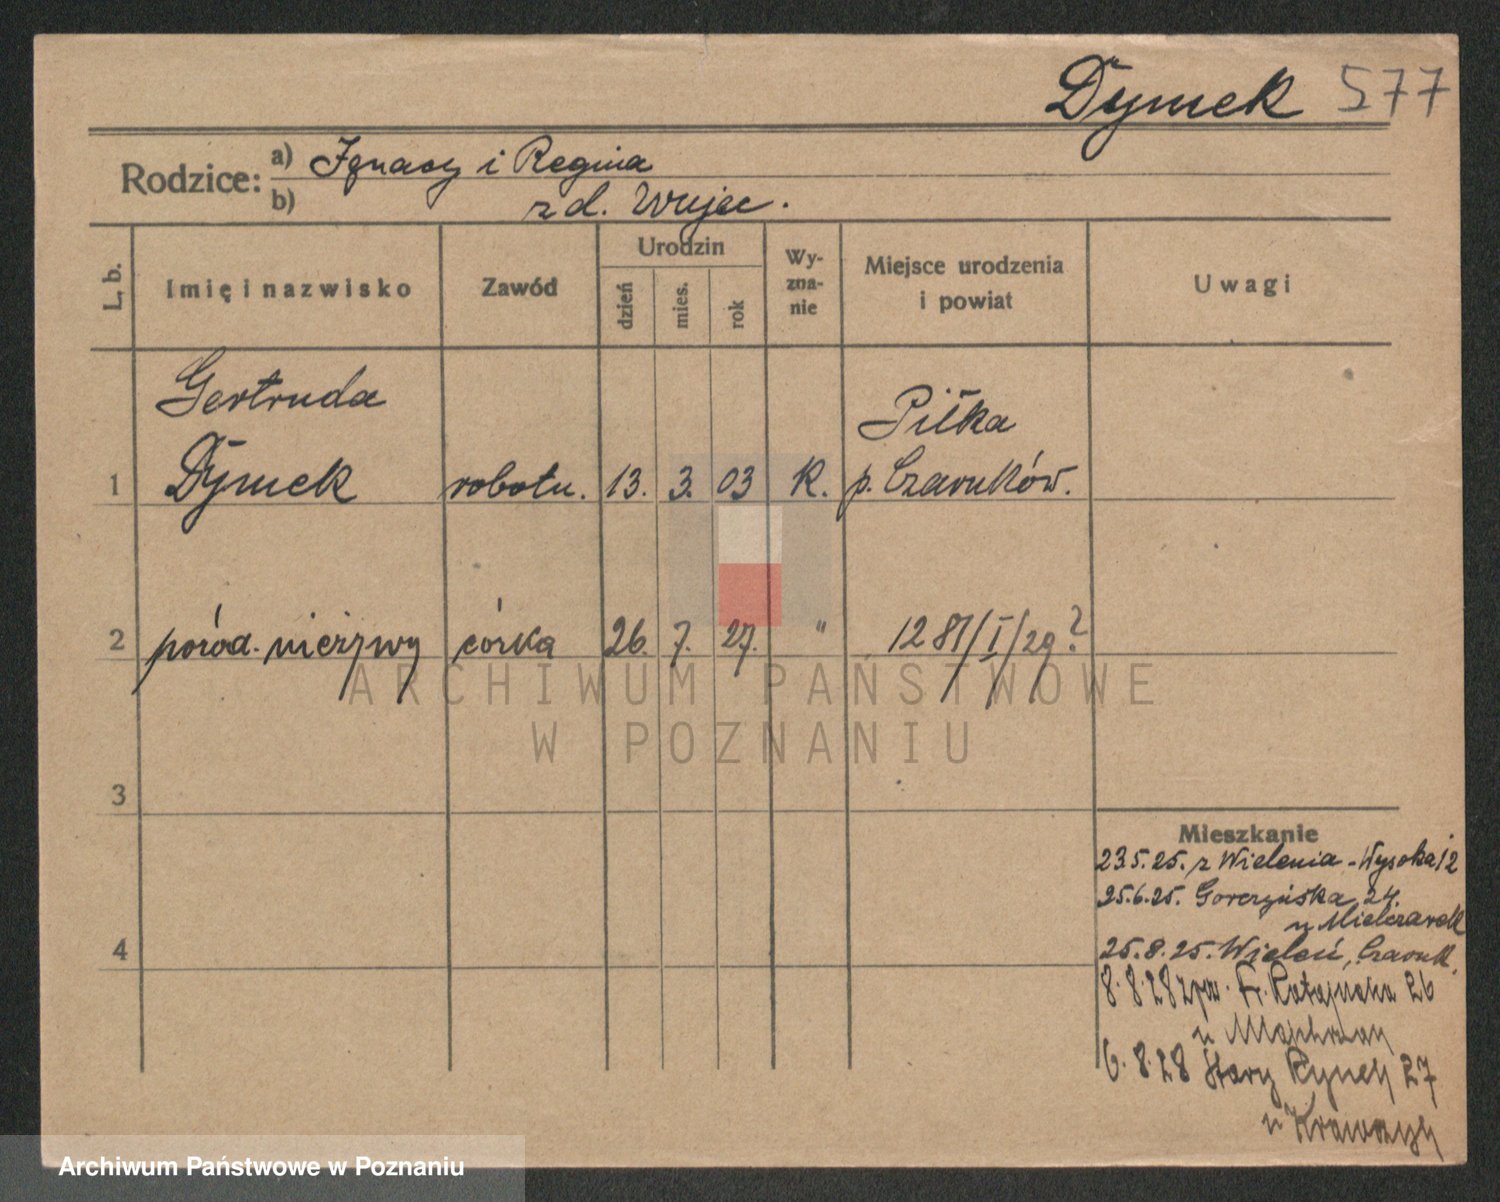 Dymek 577
Rodzice: a) Ignacy i Regina
b) z d. Wujec.
L. b.
Imię i nazwisko
Zawód
Urodzin
dzień
mies.
rok
Wy-
zna-
nie
Miejsce urodzenia
i powiat
Uwagi
Gertruda Piłka
1 Dymek robotn. 13. 3. 03 K. p. Czarnków.
2 poród. nieżywy córka 26. 7. 27. " 1281/I/29?
3
4
Mieszkanie
23.5.25. z Wielenia - Wysoka 12
25.6.25. Gorczyńska 24.
u Mielcarek
25.8.25. Wieleń, Czarnk.
8.8.28 Fr. Ratajczaka 26
u
6.8.28 Stary Rynek 27
u Krawczyk
ARCHIWUM PAŃSTWOWE
W POZNANIU
Archiwum Państwowe w Poznaniu